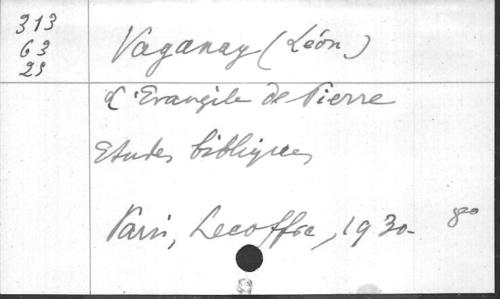 313
63
25
Vaganay (Léon)
L'Evangile de Pierre
Etudes bibliques
Paris, Lecoffre, 1930.